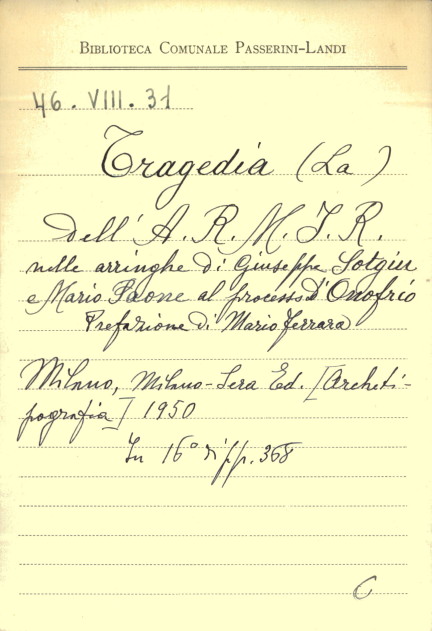 BIBLIOTECA COMUNALE PASSERINI-LANDI
46. VIII. 31
Tragedia (La)
dell'A. R. M. I. R.
nelle arringhe di Giuseppe Sotgiu
e Mario Paone al processo D'Onofrio
Prefazione di Mario Ferrara
Milano, Milano-Sera Ed. [Archeti-
pografia] 1950
In 16° di pp. 368
C